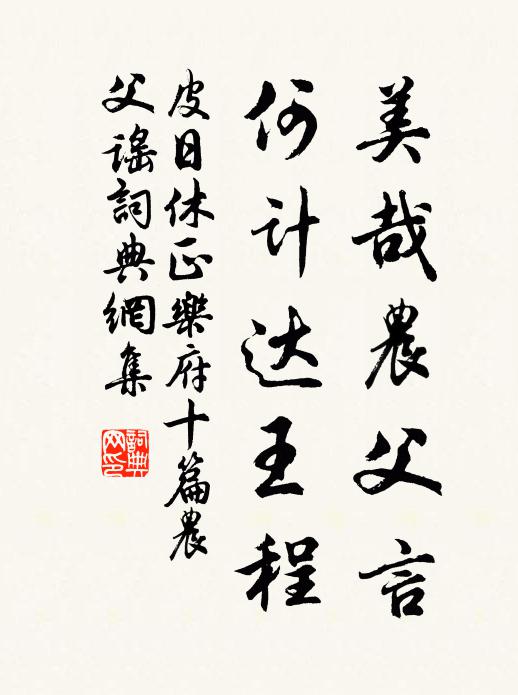 美哉農父言
何计达王程
皮日休正樂府十篇農
父谣詞典網集
詞典网印